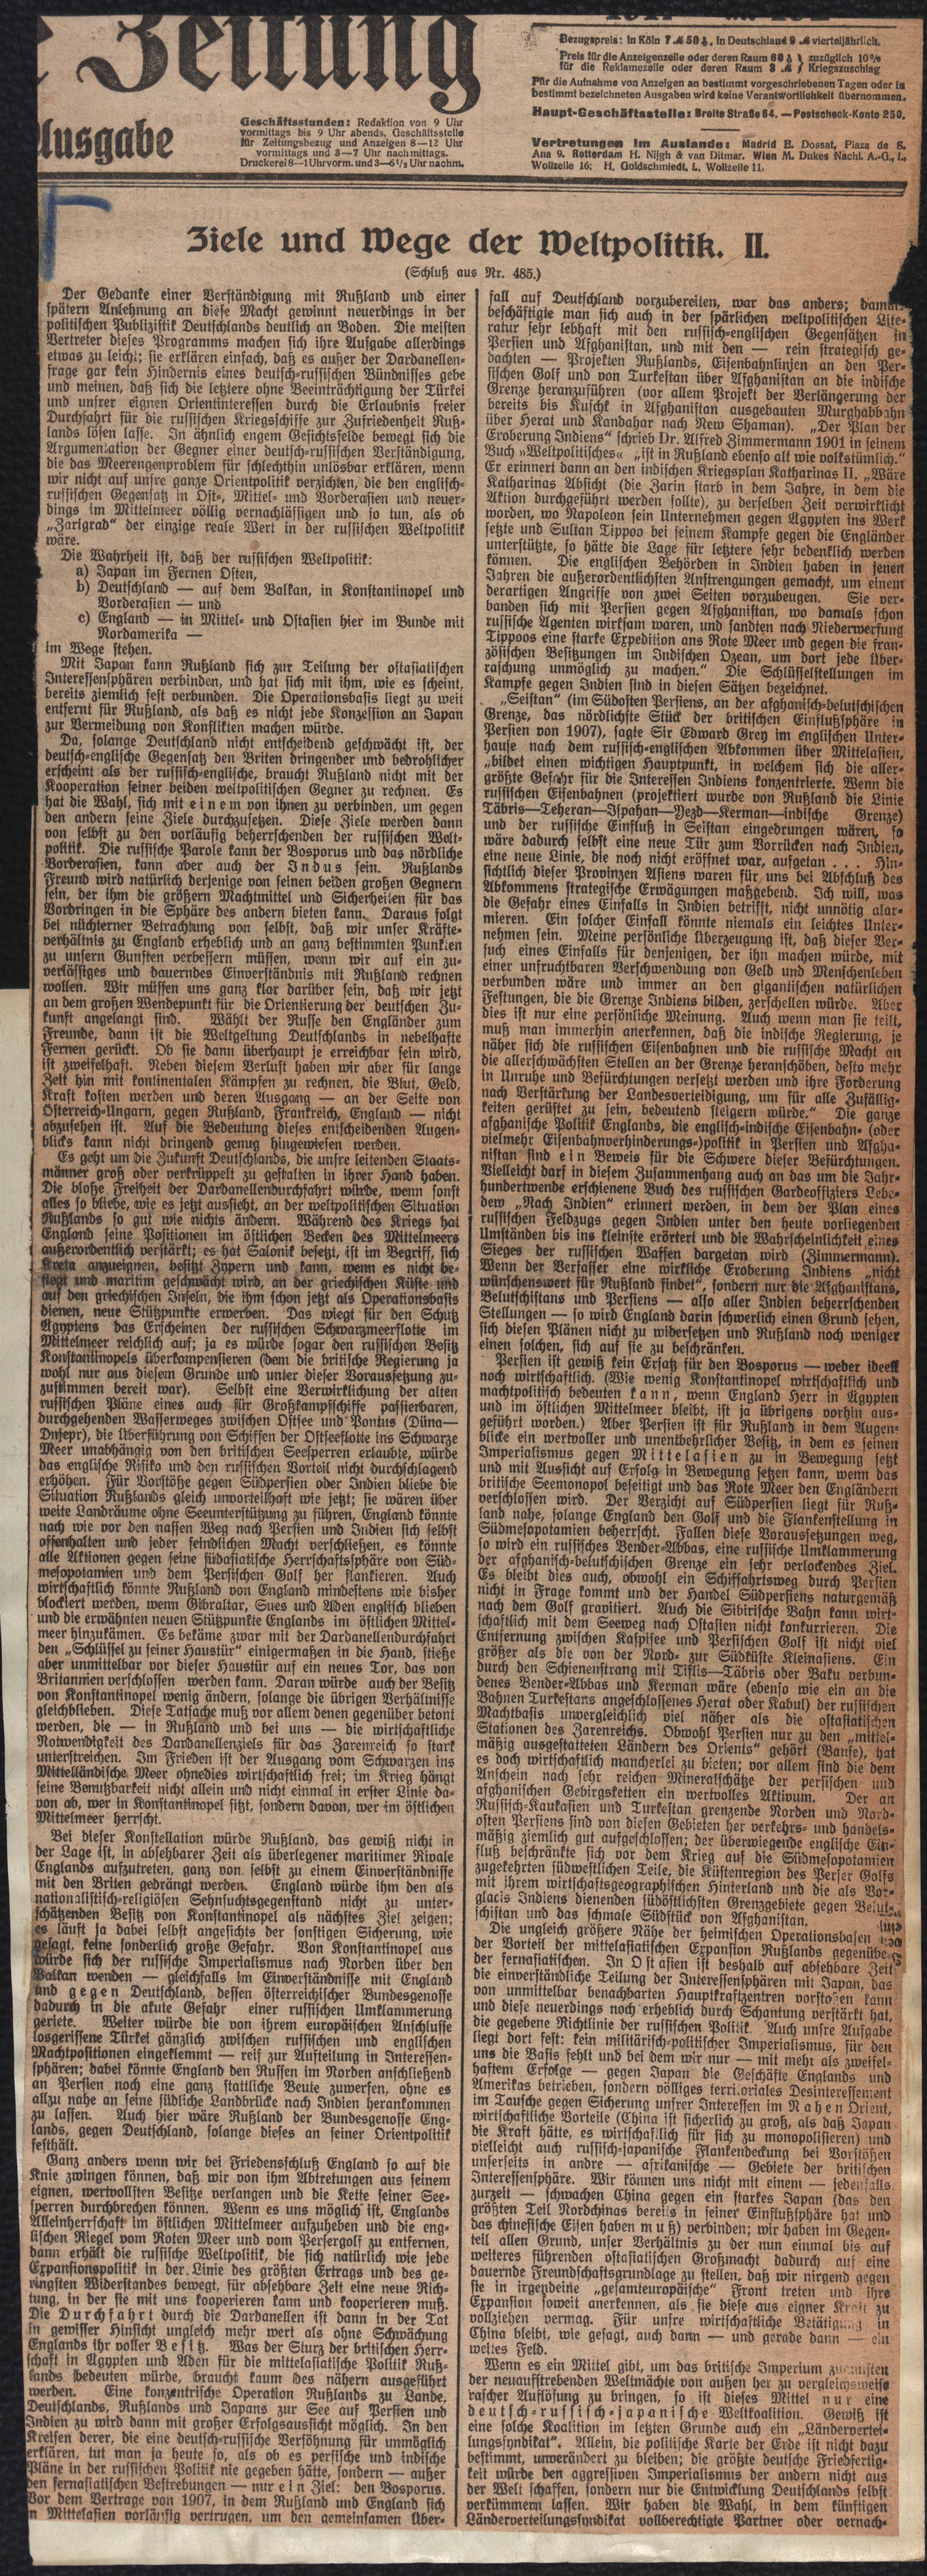 Zeitung
Ausgabe
Geschäftsstunden: Redaktion von 9 Uhr
vormittags bis 9 Uhr abends, Geschäftsstelle
für Zeitungsbezug und Anzeigen 8—12 Uhr
vormittags und 3—7 Uhr nachmittags.
Druckerei 8—1 Uhr vorm. und 3—6½ Uhr nachm.
Bezugspreis: in Köln 7 ℳ 50 ₰, in Deutschland 9 ℳ vierteljährlich.
Preis für die Anzeigenzeile oder deren Raum 60 ₰ } zuzüglich 10%
für die Reklamezeile oder deren Raum 3 ℳ } Kriegszuschlag
Für die Aufnahme von Anzeigen an bestimmt vorgeschriebenen Tagen oder in
bestimmt bezeichneten Ausgaben wird keine Verantwortlichkeit übernommen.
Haupt-Geschäftsstelle: Breite Straße 64. — Postscheck-Konto 250.
Vertretungen im Auslande: Madrid E. Dossat, Plaza de S.
Ana 9. Rotterdam H. Nijgh & van Ditmar. Wien M. Dukes Nachf. A.-G., I,
Wollzeile 16; H. Goldschmiedt, I, Wollzeile 11.
Ziele und Wege der Weltpolitik. II.
(Schluß aus Nr. 485.)
Der Gedanke einer Verständigung mit Rußland und einer
spätern Anlehnung an diese Macht gewinnt neuerdings in der
politischen Publizistik Deutschlands deutlich an Boden. Die meisten
Vertreter dieses Programms machen sich ihre Ausgabe allerdings
etwas zu leicht; sie erklären einfach, daß es außer der Dardanellen-
frage gar kein Hindernis eines deutsch-russischen Bündnisses gebe
und meinen, daß sich die letztere ohne Beeinträchtigung der Türkei
und unsrer eignen Orientinteressen durch die Erlaubnis freier
Durchfahrt für die russischen Kriegsschiffe zur Zufriedenheit Ruß-
lands lösen lasse. In ähnlich engem Gesichtsfelde bewegt sich die
Argumentation der Gegner einer deutsch-russischen Verständigung,
die das Meerengenproblem für schlechthin unlösbar erklären, wenn
wir nicht auf unsre ganze Orientpolitik verzichten, die den englisch-
russischen Gegensatz in Ost-, Mittel- und Vorderasien und neuer-
dings im Mittelmeer völlig vernachlässigen und so tun, als ob
„Zarigrad“ der einzige reale Wert in der russischen Weltpolitik
wäre.
Die Wahrheit ist, daß der russischen Weltpolitik:
a) Japan im Fernen Osten,
b) Deutschland — auf dem Balkan, in Konstantinopel und
Vorderasien — und
c) England — in Mittel- und Ostasien hier im Bunde mit
Nordamerika —
im Wege stehen.
Mit Japan kann Rußland sich zur Teilung der ostasiatischen
Interessensphären verbinden, und hat sich mit ihm, wie es scheint,
bereits ziemlich fest verbunden. Die Operationsbasis liegt zu weit
entfernt für Rußland, als daß es nicht jede Konzession an Japan
zur Vermeidung von Konflikten machen würde.
Da, solange Deutschland nicht entscheidend geschwächt ist, der
deutsch-englische Gegensatz den Briten dringender und bedrohlicher
erscheint als der russisch-englische, braucht Rußland nicht mit der
Kooperation seiner beiden weltpolitischen Gegner zu rechnen. Es
hat die Wahl, sich mit einem von ihnen zu verbinden, um gegen
den andern seine Ziele durchzusetzen. Diese Ziele werden dann
von selbst zu den vorläufig beherrschenden der russischen Welt-
politik. Die russische Parole kann der Bosporus und das nördliche
Vorderasien, kann aber auch der Indus sein. Rußlands
Freund wird natürlich derjenige von seinen beiden großen Gegnern
sein, der ihm die größern Machtmittel und Sicherheiten für das
Vordringen in die Sphäre des andern bieten kann. Daraus folgt
bei nüchterner Betrachtung von selbst, daß wir unser Kräfte-
verhältnis zu England erheblich und an ganz bestimmten Punkten
zu unsern Gunsten verbessern müssen, wenn wir auf ein zu-
verlässiges und dauerndes Einverständnis mit Rußland rechnen
wollen. Wir müssen uns ganz klar darüber sein, daß wir jetzt
an dem großen Wendepunkt für die Orientierung der deutschen Zu-
kunft angelangt sind. Wählt der Russe den Engländer zum
Freunde, dann ist die Weltgeltung Deutschlands in nebelhafte
Fernen gerückt. Ob sie dann überhaupt je erreichbar sein wird,
ist zweifelhaft. Neben diesem Verlust haben wir aber für lange
Zeit hin mit kontinentalen Kämpfen zu rechnen, die Blut, Geld,
Kraft kosten werden und deren Ausgang — an der Seite von
Österreich-Ungarn, gegen Rußland, Frankreich, England — nicht
abzusehen ist. Auf die Bedeutung dieses entscheidenden Augen-
blicks kann nicht dringend genug hingewiesen werden.
Es geht um die Zukunft Deutschlands, die unsre leitenden Staats-
männer groß oder verkrüppelt zu gestalten in ihrer Hand haben.
Die bloße Freiheit der Dardanellendurchfahrt würde, wenn sonst
alles so bliebe, wie es jetzt aussieht, an der weltpolitischen Situation
Rußlands so gut wie nichts ändern. Während des Kriegs hat
England seine Positionen im östlichen Becken des Mittelmeers
außerordentlich verstärkt; es hat Salonik besetzt, ist im Begriff, sich
Kreta anzueignen, besitzt Zypern und kann, wenn es nicht be-
siegt und maritim geschwächt wird, an der griechischen Küste und
auf den griechischen Inseln, die ihm schon jetzt als Operationsbasis
dienen, neue Stützpunkte erwerben. Das wiegt für den Schutz
Ägyptens das Erscheinen der russischen Schwarzmeerflotte im
Mittelmeer reichlich auf; ja es würde sogar den russischen Besitz
Konstantinopels überkompensieren (dem die britische Regierung ja
wohl nur aus diesem Grunde und unter dieser Voraussetzung zu-
zustimmen bereit war). Selbst eine Verwirklichung der alten
russischen Pläne eines auch für Großkampfschiffe passierbaren,
durchgehenden Wasserweges zwischen Ostsee und Pontus (Düna—
Dnjepr), die Überführung von Schiffen der Ostseeflotte ins Schwarze
Meer unabhängig von den britischen Seesperren erlaubte, würde
das englische Risiko und den russischen Vorteil nicht durchschlagend
erhöhen. Für Vorstöße gegen Südpersien oder Indien bliebe die
Situation Rußlands gleich unvorteilhaft wie jetzt; sie wären über
weite Landräume ohne Seeunterstützung zu führen, England könnte
nach wie vor den nassen Weg nach Persien und Indien sich selbst
offenhalten und jeder feindlichen Macht verschließen, es könnte
alle Aktionen gegen seine südasiatische Herrschaftssphäre von Süd-
mesopotamien und dem Persischen Golf her flankieren. Auch
wirtschaftlich könnte Rußland von England mindestens wie bisher
blockiert werden, wenn Gibraltar, Sues und Aden englisch blieben
und die erwähnten neuen Stützpunkte Englands im östlichen Mittel-
meer hinzukämen. Es bekäme zwar mit der Dardanellendurchfahrt
den „Schlüssel zu seiner Haustür“ einigermaßen in die Hand, stieße
aber unmittelbar vor dieser Haustür auf ein neues Tor, das von
Britannien verschlossen werden kann. Daran würde auch der Besitz
von Konstantinopel wenig ändern, solange die übrigen Verhältnisse
gleichblieben. Diese Tatsache muß vor allem denen gegenüber betont
werden, die — in Rußland und bei uns — die wirtschaftliche
Notwendigkeit des Dardanellenziels für das Zarenreich so stark
unterstreichen. Im Frieden ist der Ausgang vom Schwarzen ins
Mittelländische Meer ohnedies wirtschaftlich frei; im Krieg hängt
seine Benutzbarkeit nicht allein und nicht einmal in erster Linie da-
von ab, wer in Konstantinopel sitzt, sondern davon, wer im östlichen
Mittelmeer herrscht.
Bei dieser Konstellation würde Rußland, das gewiß nicht in
der Lage ist, in absehbarer Zeit als überlegener maritimer Rivale
Englands aufzutreten, ganz von selbst zu einem Einverständnisse
mit den Briten gedrängt werden. England würde ihm den als
nationalistisch-religiösen Sehnsuchtsgegenstand nicht zu unter-
schätzenden Besitz von Konstantinopel als nächstes Ziel zeigen;
es läuft ja dabei selbst angesichts der sonstigen Sicherung, wie
gesagt, keine sonderlich große Gefahr. Von Konstantinopel aus
würde sich der russische Imperialismus nach Norden über den
Balkan wenden — gleichfalls im Einverständnisse mit England
und gegen Deutschland, dessen österreichischer Bundesgenosse
dadurch in die akute Gefahr einer russischen Umklammerung
geriete. Weiter würde die von ihrem europäischen Anschlusse
losgerissene Türkei gänzlich zwischen russischen und englischen
Machtpositionen eingeklemmt — reif zur Aufteilung in Interessen-
sphären; dabei könnte England den Russen im Norden anschließend
an Persien noch eine ganz stattliche Beute zuwerfen, ohne es
allzu nahe an seine südliche Landbrücke nach Indien herankommen
zu lassen. Auch hier wäre Rußland der Bundesgenosse Eng-
lands, gegen Deutschland, solange dieses an seiner Orientpolitik
festhält.
Ganz anders wenn wir bei Friedensschluß England so auf die
Knie zwingen können, daß wir von ihm Abtretungen aus seinem
eignen, wertvollsten Besitze verlangen und die Kette seiner See-
sperren durchbrechen können. Wenn es uns möglich ist, Englands
Alleinherrschaft im östlichen Mittelmeer aufzuheben und die eng-
lischen Riegel vom Roten Meer und vom Persergolf zu entfernen,
dann erhält die russische Weltpolitik, die sich natürlich wie jede
Expansionspolitik in der Linie des größten Ertrags und des ge-
ringsten Widerstandes bewegt, für absehbare Zeit eine neue Rich-
tung, in der sie mit uns kooperieren kann und kooperieren muß.
Die Durchfahrt durch die Dardanellen ist dann in der Tat
in gewisser Hinsicht ungleich mehr wert als ohne Schwächung
Englands ihr voller Besitz. Was der Sturz der britischen Herr-
schaft in Ägypten und Aden für die mittelasiatische Politik Ruß-
lands bedeuten würde, braucht kaum des nähern ausgeführt
werden. Eine konzentrische Operation Rußlands zu Lande,
Deutschlands, Rußlands und Japans zur See auf Persien und
Indien zu wird dann mit großer Erfolgsaussicht möglich. In den
Kreisen derer, die eine deutsch-russische Versöhnung für unmöglich
erklären, tut man ja heute so, als ob es persische und indische
Pläne in der russischen Politik nie gegeben hätte, sondern — außer
den fernasiatischen Bestrebungen — nur ein Ziel: den Bosporus.
Vor dem Vertrage von 1907, in dem Rußland und England sich
in Mittelasien vorläufig vertrugen, um den gemeinsamen Über-
fall auf Deutschland vorzubereiten, war das anders; damals
beschäftigte man sich auch in der spärlichen weltpolitischen Lite-
ratur sehr lebhaft mit den russisch-englischen Gegensätzen in
Persien und Afghanistan, und mit den — rein strategisch ge-
dachten — Projekten Rußlands, Eisenbahnlinien an den Per-
sischen Golf und von Turkestan über Afghanistan an die indische
Grenze heranzuführen (vor allem Projekt der Verlängerung der
bereits bis Kuschk in Afghanistan ausgebauten Murghabbahn
über Herat und Kandahar nach New Shaman). „Der Plan der
Eroberung Indiens“ schrieb Dr. Alfred Zimmermann 1901 in seinem
Buch »Weltpolitisches« „ist in Rußland ebenso alt wie volkstümlich.“
Er erinnert dann an den indischen Kriegsplan Katharinas II. „Wäre
Katharinas Absicht (die Zarin starb in dem Jahre, in dem die
Aktion durchgeführt werden sollte), zu derselben Zeit verwirklicht
worden, wo Napoleon sein Unternehmen gegen Ägypten ins Werk
setzte und Sultan Tippoo bei seinem Kampfe gegen die Engländer
unterstützte, so hätte die Lage für letztere sehr bedenklich werden
können. Die englischen Behörden in Indien haben in jenen
Jahren die außerordentlichsten Anstrengungen gemacht, um einem
derartigen Angriffe von zwei Seiten vorzubeugen. Sie ver-
banden sich mit Persien gegen Afghanistan, wo damals schon
russische Agenten wirksam waren, und sandten nach Niederwerfung
Tippoos eine starke Expedition ans Rote Meer und gegen die fran-
zösischen Besitzungen im Indischen Ozean, um dort jede Über-
raschung unmöglich zu machen.“ Die Schlüsselstellungen im
Kampfe gegen Indien sind in diesen Sätzen bezeichnet.
„Seistan“ (im Südosten Persiens, an der afghanisch-belutschischen
Grenze, das nördlichste Stück der britischen Einflußsphäre in
Persien von 1907), sagte Sir Edward Grey im englischen Unter-
hause nach dem russisch-englischen Abkommen über Mittelasien,
„bildet einen wichtigen Hauptpunkt, in welchem sich die aller-
größte Gefahr für die Interessen Indiens konzentrierte. Wenn die
russischen Eisenbahnen (projektiert wurde von Rußland die Linie
Täbris—Teheran—Ispahan—Yezd—Kerman—indische Grenze)
und der russische Einfluß in Seistan eingedrungen wären, so
wäre dadurch selbst eine neue Tür zum Vorrücken nach Indien,
eine neue Linie, die noch nicht eröffnet war, aufgetan . . . Hin-
sichtlich dieser Provinzen Asiens waren für uns bei Abschluß des
Abkommens strategische Erwägungen maßgebend. Ich will, was
die Gefahr eines Einfalls in Indien betrifft, nicht unnötig alar-
mieren. Ein solcher Einfall könnte niemals ein leichtes Unter-
nehmen sein. Meine persönliche Überzeugung ist, daß dieser Ver-
such eines Einfalls für denjenigen, der ihn machen würde, mit
einer unfruchtbaren Verschwendung von Geld und Menschenleben
verbunden wäre und immer an den gigantischen natürlichen
Festungen, die die Grenze Indiens bilden, zerschellen würde. Aber
dies ist nur eine persönliche Meinung. Auch wenn man sie teilt,
muß man immerhin anerkennen, daß die indische Regierung, je
näher sich die russischen Eisenbahnen und die russische Macht an
die allerschwächsten Stellen an der Grenze heranschöben, desto mehr
in Unruhe und Befürchtungen versetzt werden und ihre Forderung
nach Verstärkung der Landesverteidigung, um für alle Zufällig-
keiten gerüstet zu sein, bedeutend steigern würde.“ Die ganze
afghanische Politik Englands, die englisch-indische Eisenbahn- (oder
vielmehr Eisenbahnverhinderungs-)politik in Persien und Afgha-
nistan sind ein Beweis für die Schwere dieser Befürchtungen.
Vielleicht darf in diesem Zusammenhang auch an das um die Jahr-
hundertwende erschienene Buch des russischen Gardeoffiziers Lebe-
dew „Nach Indien“ erinnert werden, in dem der Plan eines
russischen Feldzugs gegen Indien unter den heute vorliegenden
Umständen bis ins kleinste erörtert und die Wahrscheinlichkeit eines
Sieges der russischen Waffen dargetan wird (Zimmermann).
Wenn der Verfasser eine wirkliche Eroberung Indiens „nicht
wünschenswert für Rußland findet“, sondern nur die Afghanistans,
Belutschistans und Persiens — also aller Indien beherrschenden
Stellungen — so wird England darin schwerlich einen Grund sehen,
sich diesen Plänen nicht zu widersetzen und Rußland noch weniger
einen solchen, sich auf sie zu beschränken.
Persien ist gewiß kein Ersatz für den Bosporus — weder ideell
noch wirtschaftlich. (Wie wenig Konstantinopel wirtschaftlich und
machtpolitisch bedeuten kann, wenn England Herr in Ägypten
und im östlichen Mittelmeer bleibt, ist ja übrigens vorhin aus-
geführt worden.) Aber Persien ist für Rußland in dem Augen-
blicke ein wertvoller und unentbehrlicher Besitz, in dem es seinen
Imperialismus gegen Mittelasien zu in Bewegung setzt
und mit Aussicht auf Erfolg in Bewegung setzen kann, wenn das
britische Seemonopol beseitigt und das Rote Meer den Engländern
verschlossen wird. Der Verzicht auf Südpersien liegt für Ruß-
land nahe, solange England den Golf und die Flankenstellung in
Südmesopotamien beherrscht. Fallen diese Voraussetzungen weg,
so wird ein russisches Bender-Abbas, eine russische Umklammerung
der afghanisch-belutschischen Grenze ein sehr verlockendes Ziel.
Es bleibt dies auch, obwohl ein Schiffahrtsweg durch Persien
nicht in Frage kommt und der Handel Südpersiens naturgemäß
nach dem Golf gravitiert. Auch die Sibirische Bahn kann wirt-
schaftlich mit dem Seeweg nach Ostasien nicht konkurrieren. Die
Entfernung zwischen Kaspisee und Persischen Golf ist nicht viel
größer als die von der Nord- zur Südküste Kleinasiens. Ein
durch den Schienenstrang mit Tiflis—Täbris oder Baku verbun-
denes Bender-Abbas und Kerman wäre (ebenso wie ein an die
Bahnen Turkestans angeschlossenes Herat oder Kabul) der russischen
Machtbasis unvergleichlich viel näher als die ostasiatischen
Stationen des Zarenreichs. Obwohl Persien nur zu den „mittel-
mäßig ausgestatteten Ländern des Orients“ gehört (Banse), hat
es doch wirtschaftlich mancherlei zu bieten; vor allem sind die dem
Anschein nach sehr reichen Mineralschätze der persischen und
afghanischen Gebirgsketten ein wertvolles Aktivum. Der an
Russisch-Kaukasien und Turkestan grenzende Norden und Nord-
osten Persiens sind von diesen Gebieten her verkehrs- und handels-
mäßig ziemlich gut aufgeschlossen; der überwiegende englische Ein-
fluß beschränkte sich vor dem Krieg auf die Südmesopotamien
zugekehrten südwestlichen Teile, die Küstenregion des Perser Golfs
mit ihrem wirtschaftsgeographischen Hinterland und die als Vor-
glacis Indiens dienenden südöstlichsten Grenzgebiete gegen Belut-
schistan und das schmale Südstück von Afghanistan.
Die ungleich größere Nähe der heimischen Operationsbasen
der Vorteil der mittelasiatischen Expansion Rußlands gegenüber
der fernasiatischen. In Ostasien ist deshalb auf absehbare Zeit
die einverständliche Teilung der Interessensphären mit Japan, das
von unmittelbar benachbarten Hauptkraftzentren vorstoßen kann
und diese neuerdings noch erheblich durch Schantung verstärkt hat,
die gegebene Richtlinie der russischen Politik. Auch unsre Aufgabe
liegt dort fest: kein militärisch-politischer Imperialismus, für den
uns die Basis fehlt und bei dem wir nur — mit mehr als zweifel-
haftem Erfolge — gegen Japan die Geschäfte Englands und
Amerikas betrieben, sondern völliges territoriales Desinteressement
im Tausche gegen Sicherung unsrer Interessen im Nahen Orient,
wirtschaftliche Vorteile (China ist sicherlich zu groß, als daß Japan
die Kraft hätte, es wirtschaftlich für sich zu monopolisieren) und
vielleicht auch russisch-japanische Flankendeckung bei Vorstößen
unserseits in andre — afrikanische — Gebiete der britischen
Interessensphäre. Wir können uns nicht mit einem — jedenfalls
zurzeit — schwachen China gegen ein starkes Japan (das den
größten Teil Nordchinas bereits in seiner Einflußsphäre hat und
das chinesische Eisen haben muß) verbinden; wir haben im Gegen-
teil allen Grund, unser Verhältnis zu der nun einmal bis auf
weiteres führenden ostasiatischen Großmacht dadurch auf eine
dauernde Freundschaftsgrundlage zu stellen, daß wir nirgend gegen
sie in irgendeine „gesamteuropäische“ Front treten und ihre
Expansion soweit anerkennen, als sie diese aus eigner Kraft zu
vollziehen vermag. Für unsre wirtschaftliche Betätigung in
China bleibt, wie gesagt, auch dann — und gerade dann — ein
weites Feld.
Wenn es ein Mittel gibt, um das britische Imperium zugunsten
der neuaufstrebenden Weltmächte von außen her zu vergleichsweise
rascher Auflösung zu bringen, so ist dieses Mittel nur eine
deutsch-russisch-japanische Weltkoalition. Gewiß ist
eine solche Koalition im letzten Grunde auch ein „Ländervertei-
lungssyndikat“. Allein, die politische Karte der Erde ist nicht dazu
bestimmt, unverändert zu bleiben; die größte deutsche Friedfertig-
keit würde den aggressiven Imperialismus der andern nicht aus
der Welt schaffen, sondern nur die Entwicklung Deutschlands selbst
verkümmern lassen. Wir haben die Wahl, in dem künftigen
Länderverteilungssyndikat vollberechtigte Partner oder vernach-